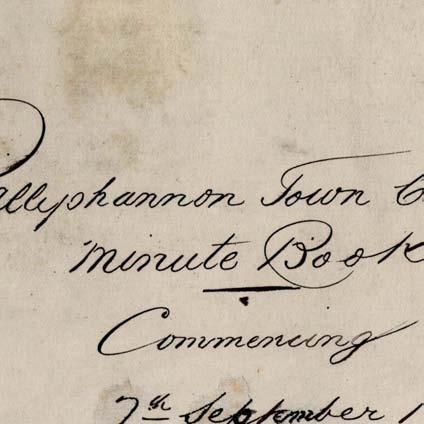 Ballyshannon Town C
Minute Book
Commencing
7th September 1